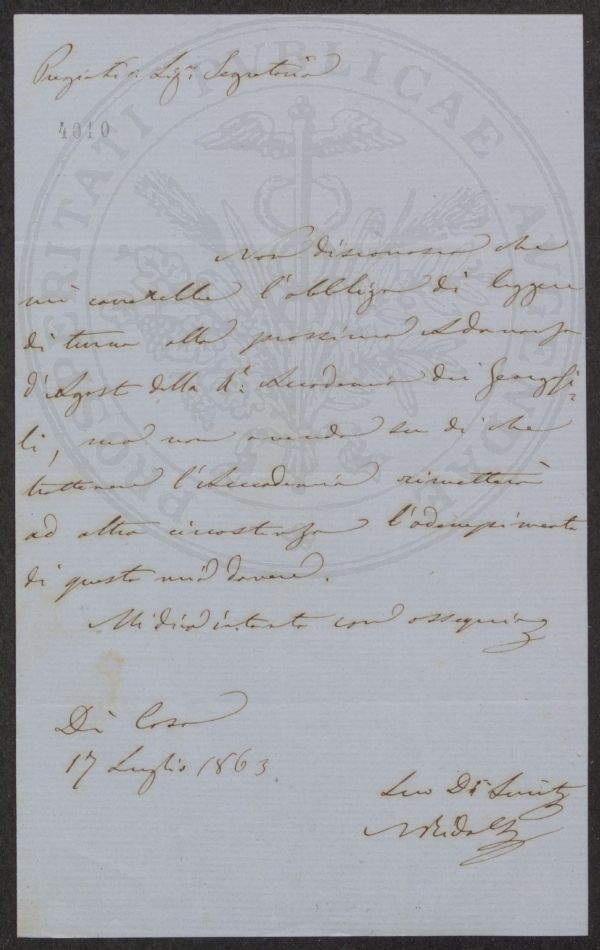 Pregiatis. Sigr. Segretario
4010
Non disconosco che
mi correrebbe l'obbligo di leggere
di turno alla prossima Adunanza
d'Agost della R. Accademia dei Georgofi=
li, ma non avendo su di che
trattenere l'Accademia rimetterò
ad altra circostanza l'adempimento
di questo mio dovere.
Mi dico intanto con ossequio
Di Casa
17 Luglio 1863
Suo Di
NRidolfi
PROSPERITATI PUBLICAE AUGENDAE